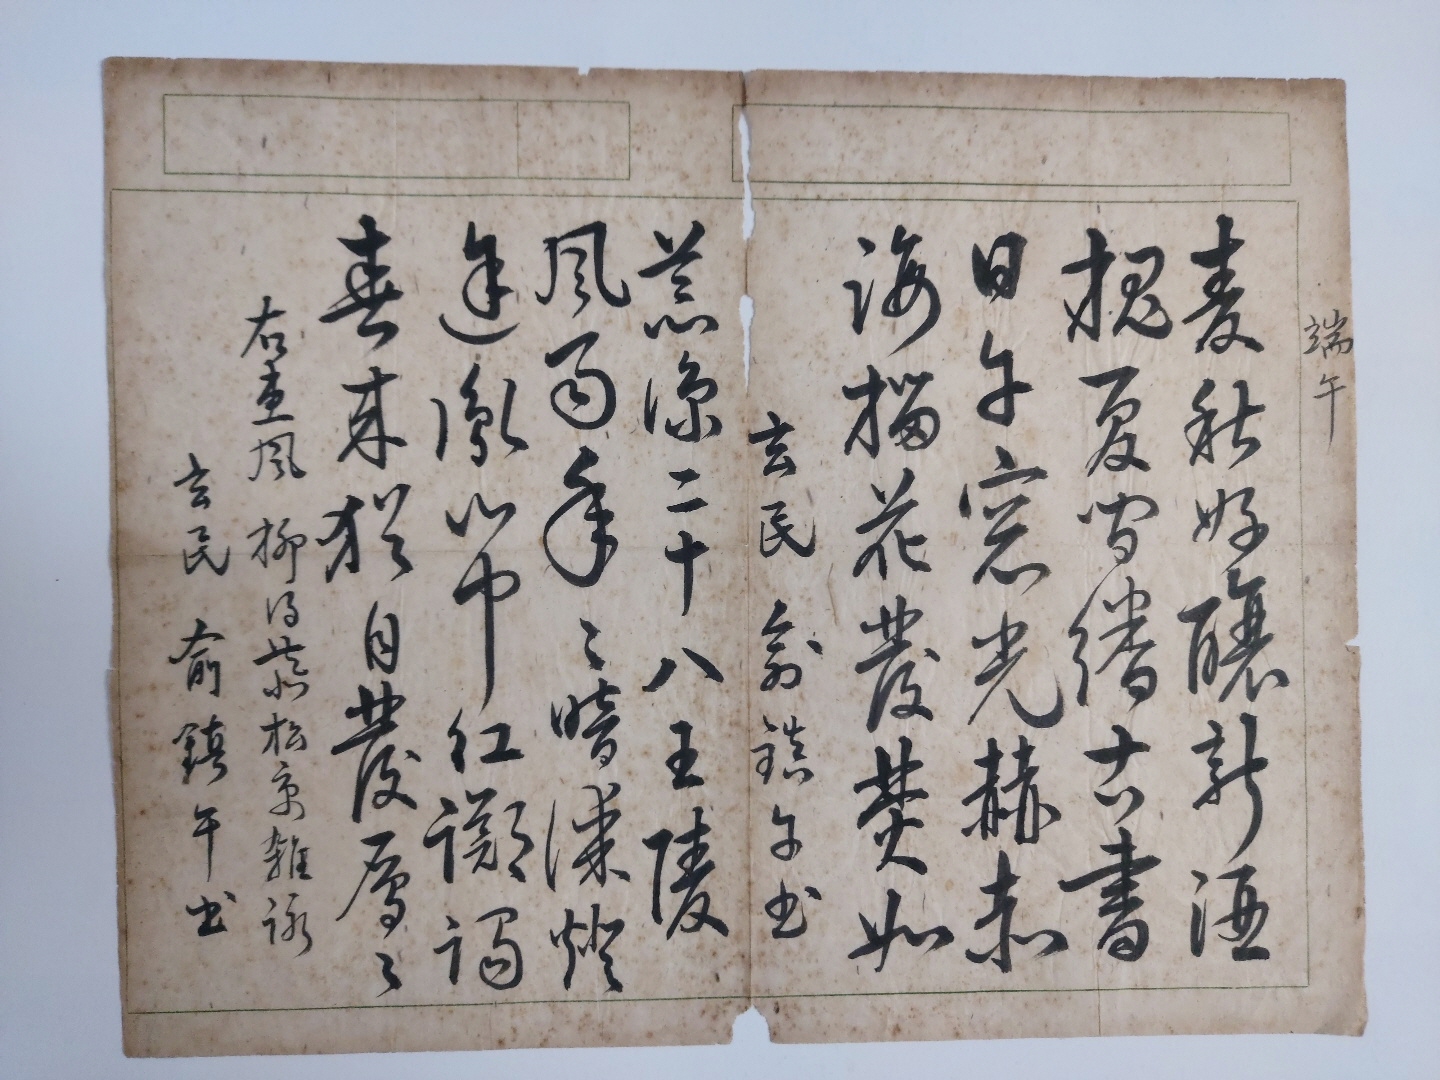 端午
麦秋好釀新酒
槐夏閒繙古書
日午窓光赫赤
海榴花發焚如
玄民 俞鎮午书
荒涼二十八王陵
風雨年々暗漆燈
進鳳山中红躑躅
春来猶自發層々
右惠風 柳得恭松京雜詠
玄民 俞鎮午书